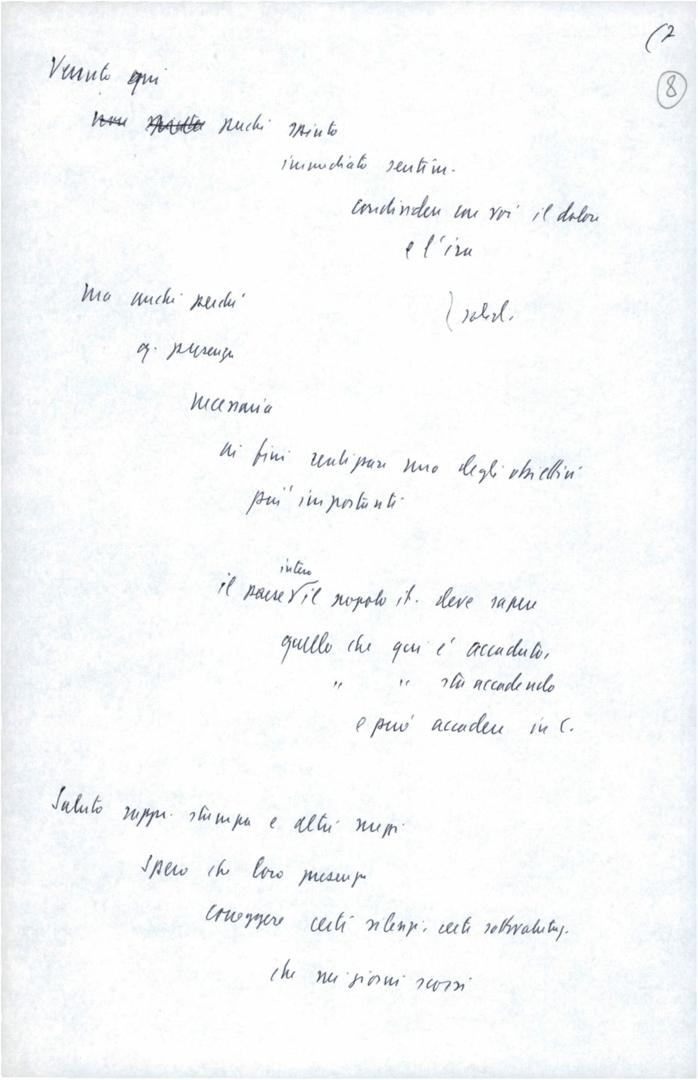 (2
8
Venuto qui
non spinto anche spinto
immediato sentim.
condividere con voi il dolore
e l'ira
ma anche perché
} solid.
presenza
necessaria
ai fini realizzare uno degli obiettivi
più importanti
intero
il paese √ il popolo it. deve sapere
quello che qui è accaduto,
" " sta accadendo
e può accadere in C.
Saluto rappr. stampa e altri mezzi
Spero che loro presenza
correggere certi silenzi, certe sottovalutaz.
che nei giorni scorsi